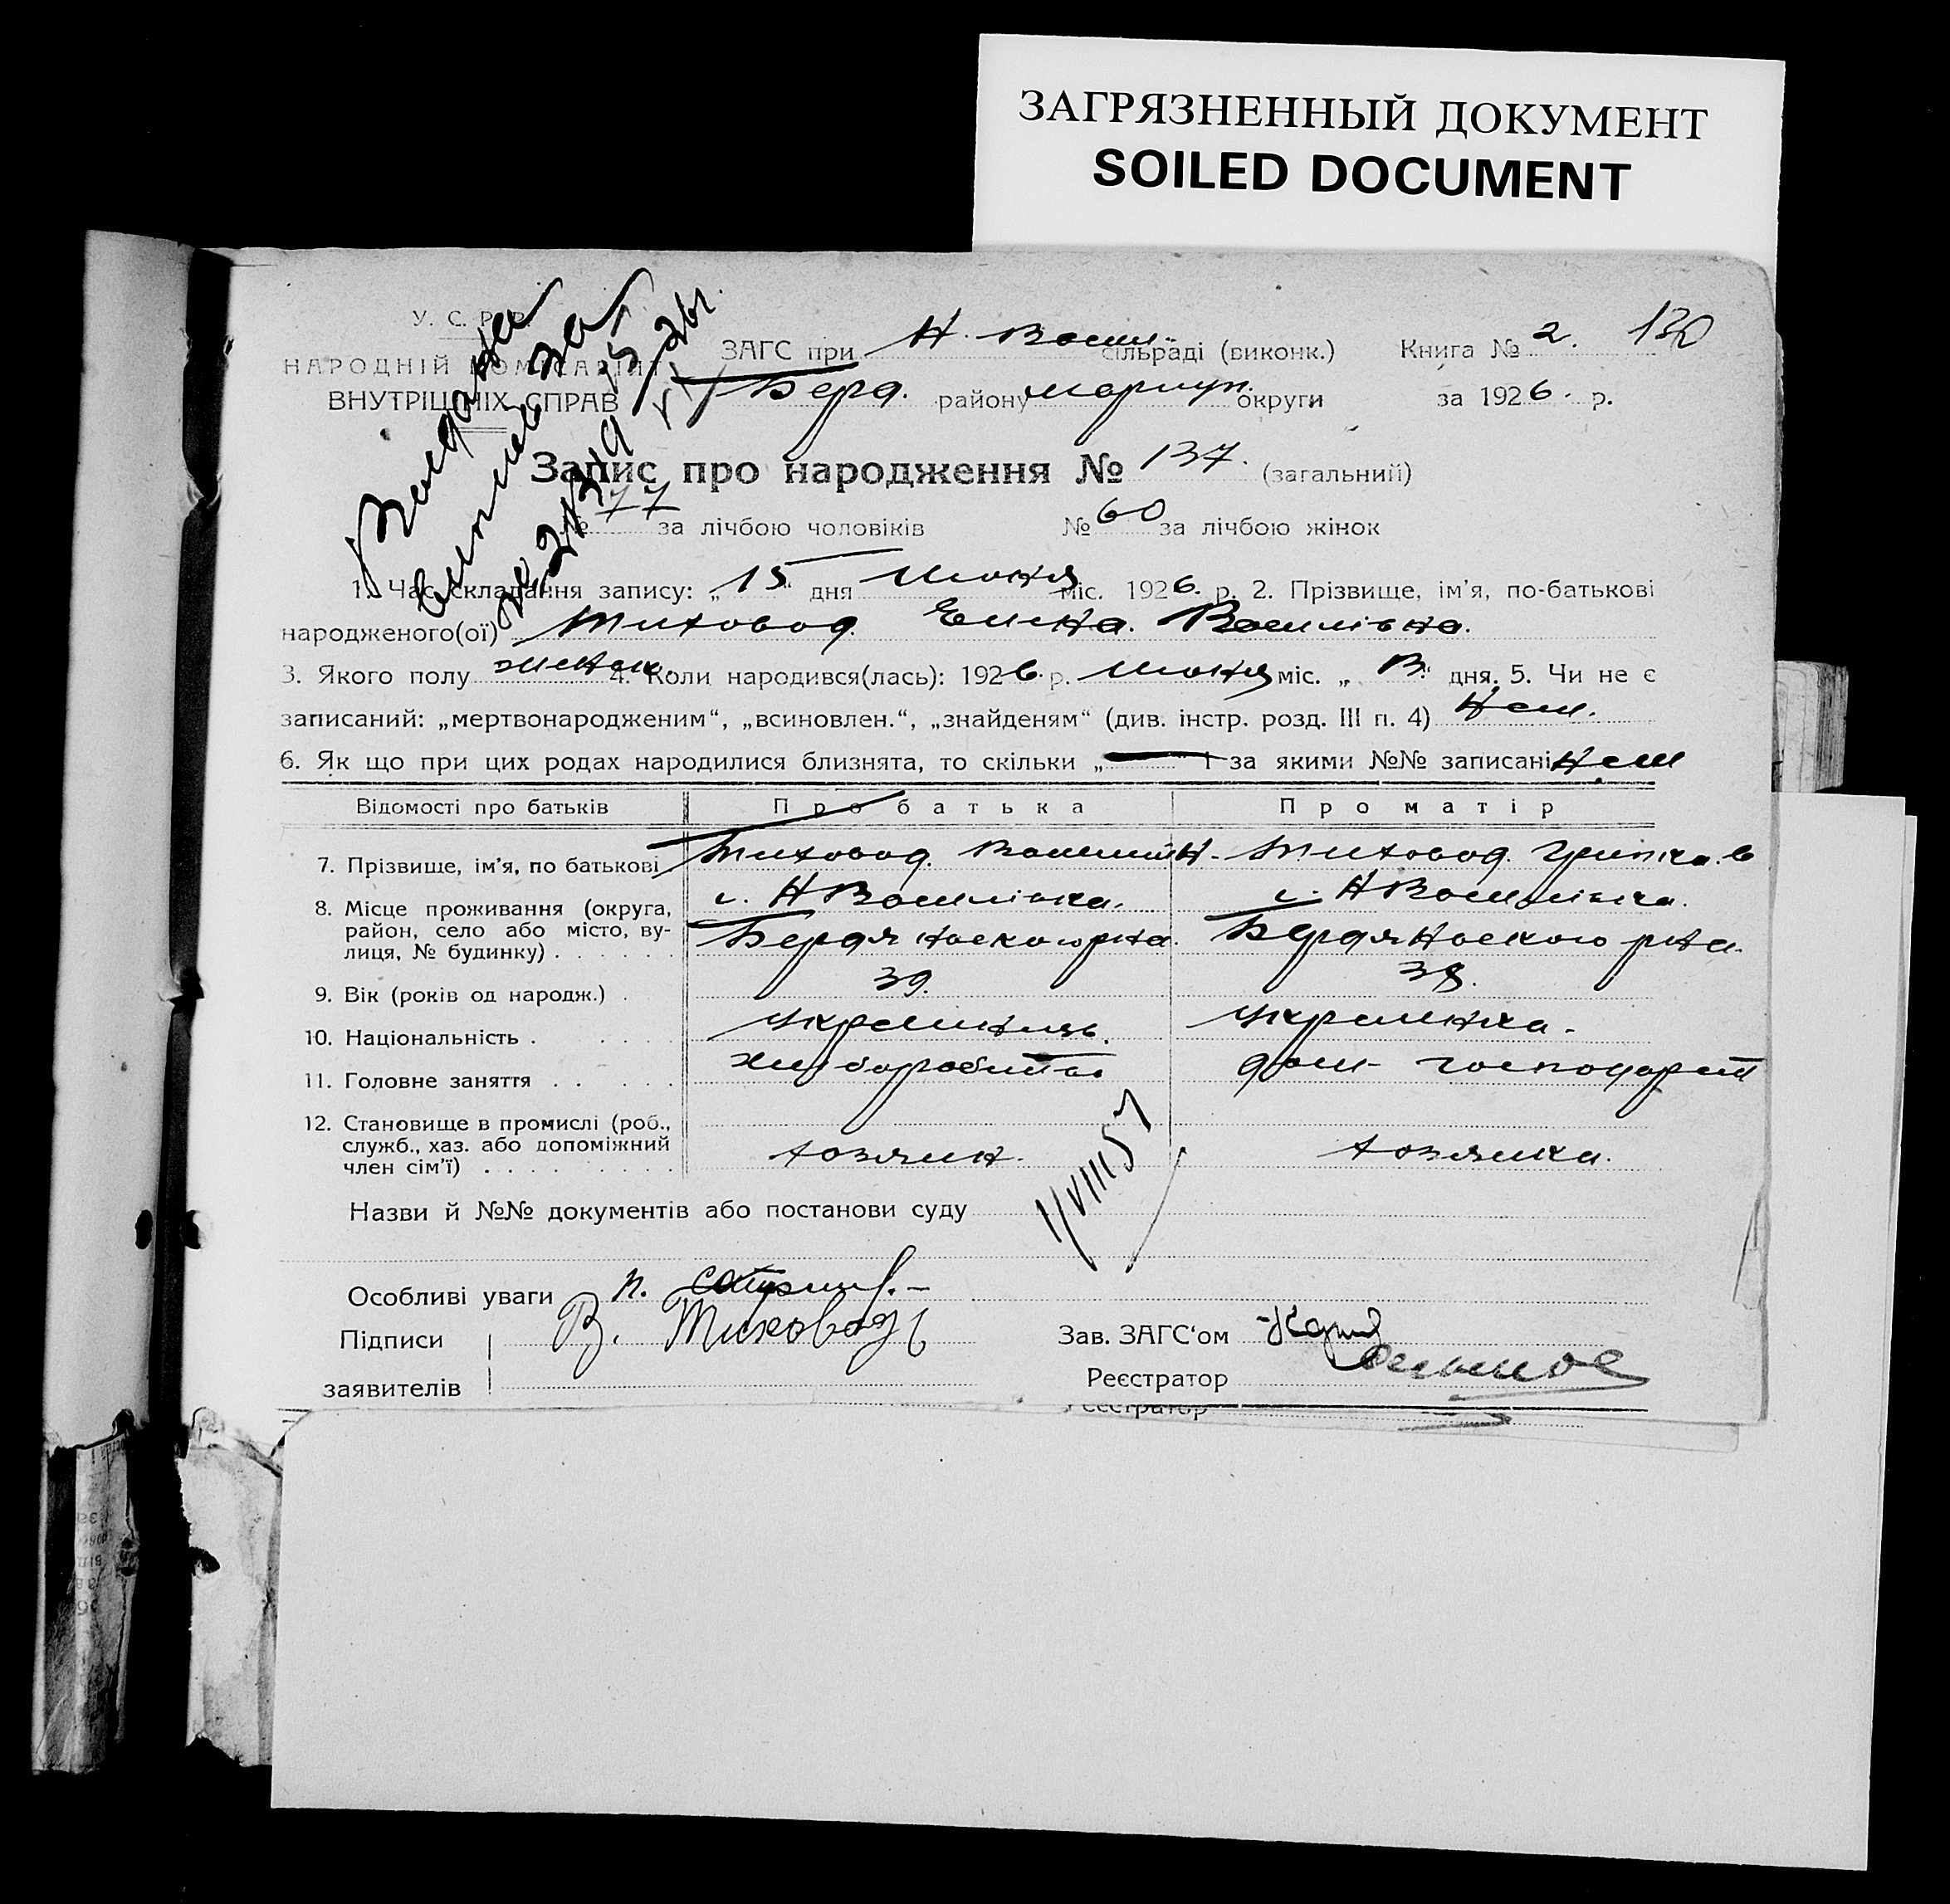 ЗАГРЯЗНЕННЫЙ ДОКУМЕНТ
SOILED DOCUMENT
У. С. Р. Р.
НАРОДНІЙ КОМІСАРІЯТ
ВНУТРІШНІХ СПРАВ
ЗАГС при Н. Васил. сільраді (виконк.) Книга № 2. 130
Берд. району Мариуп. округи за 1926. р.
Видана
за
Запис про народження № 137. (загальний)
№ 77 за лічбою чоловіків № 60 за лічбою жінок
1. Час складання запису: „15“ дня Июня міс. 1926. р. 2. Прізвище, ім'я, по-батькові
народженого(ої) Тиховод. Василівна.
3. Якого полу женск. 4. Коли народився(лась): 1926. р. Июня міс. „ “ дня. 5. Чи не є
записаний: „мертвонародженим“, „всиновлен.“, „знайденям“ (див. інстр. розд. III п. 4) Нет.
6. Як що при цих родах народилися близнята, то скільки „—“ і за якими №№ записані Нет
Відомості про батьків Про батька Про матір
7. Прізвище, ім'я, по батькові Тиховод. Тиховод.
8. Місце проживання (округа, район, село або місто, вулиця, № будинку) . . . . . . с. Н Василівка. Бердянського рна. с. Н Василівка. Бердянського рна.
9. Вік (років од народж.) . 39. 38.
10. Національність . . . . . Українець. Українка.
11. Головне заняття . . . . . хлібороб дом. господарст
12. Становище в промислі (роб., служб., хаз. або допоміжний член сім'ї) . . . . . . . . . хозяин. хозяйка.
Назви й №№ документів або постанови суду
Особливі уваги
Підписи В. Тиховод Зав. ЗАГС'ом
заявителів Реєстратор
Реєстратор